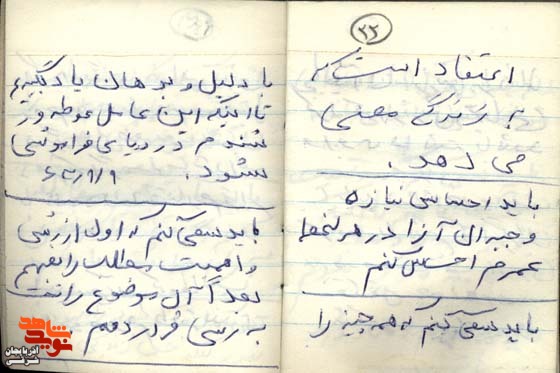 ۲۲
اعتقاد است که
به زندگی معنی
می دهد.
باید احساس نیاز
و جبران آنرا در هر لحظه
عمرم احساس کنم
باید سعی کنم که همه چیز را
با دلیل و برهان یاد بگیرم
تا اینکه این عامل غوطه ور
شدنم در دریای فراموشی
نشود. ۶۳/۹/۹
باید سعی کنم که اول ارزش
و اهمیت مطالب را بفهمم
بعداً آن موضوع را تحت
بررسی قرار دهم.
نوید شاهد
آذربایجان